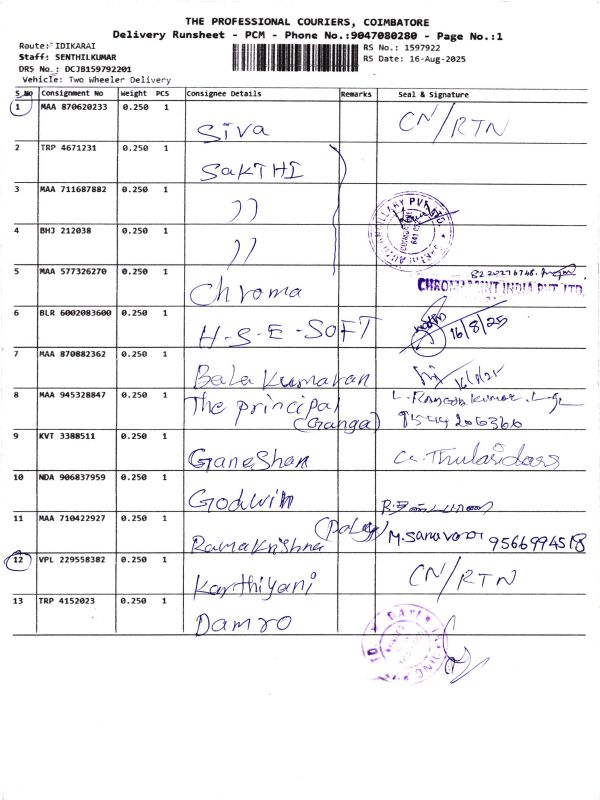 THE PROFESSIONAL COURIERS, COIMBATORE
Delivery Runsheet - PCM - Phone No.:9047080280 - Page No.:1
Route: IDIKARAI
RS No.: 1597922
Staff: SENTHILKUMAR
RS Date: 16-Aug-2025
DRS No.: DCJB159792201
Vehicle: Two Wheeler Delivery
S No Consignment No Weight PCS Consignee Details Remarks Seal & Signature
1 MAA 870620233 0.250 1 Siva CN/RTN
2 TRP 4671231 0.250 1 SakTHI
3 MAA 711687882 0.250 1 ))
4 BHJ 212038 0.250 1 ))
5 MAA 577326270 0.250 1 Chroma
CHROMAPRINT INDIA PVT. LTD.
6 BLR 6002083600 0.250 1 H-S-E-SOFT 16/8/25
7 MAA 870882362 0.250 1 Bala Kumaran 16/8/25
8 MAA 945328847 0.250 1 The principal
(Ganga)
9 KVT 3388511 0.250 1 Ganeshan
10 NDA 906837959 0.250 1 Godwin
11 MAA 710422927 0.250 1 Ramakrishna 9566994518
12 VPL 229558382 0.250 1 Karthiyani CN/RTN
13 TRP 4152023 0.250 1 Damro